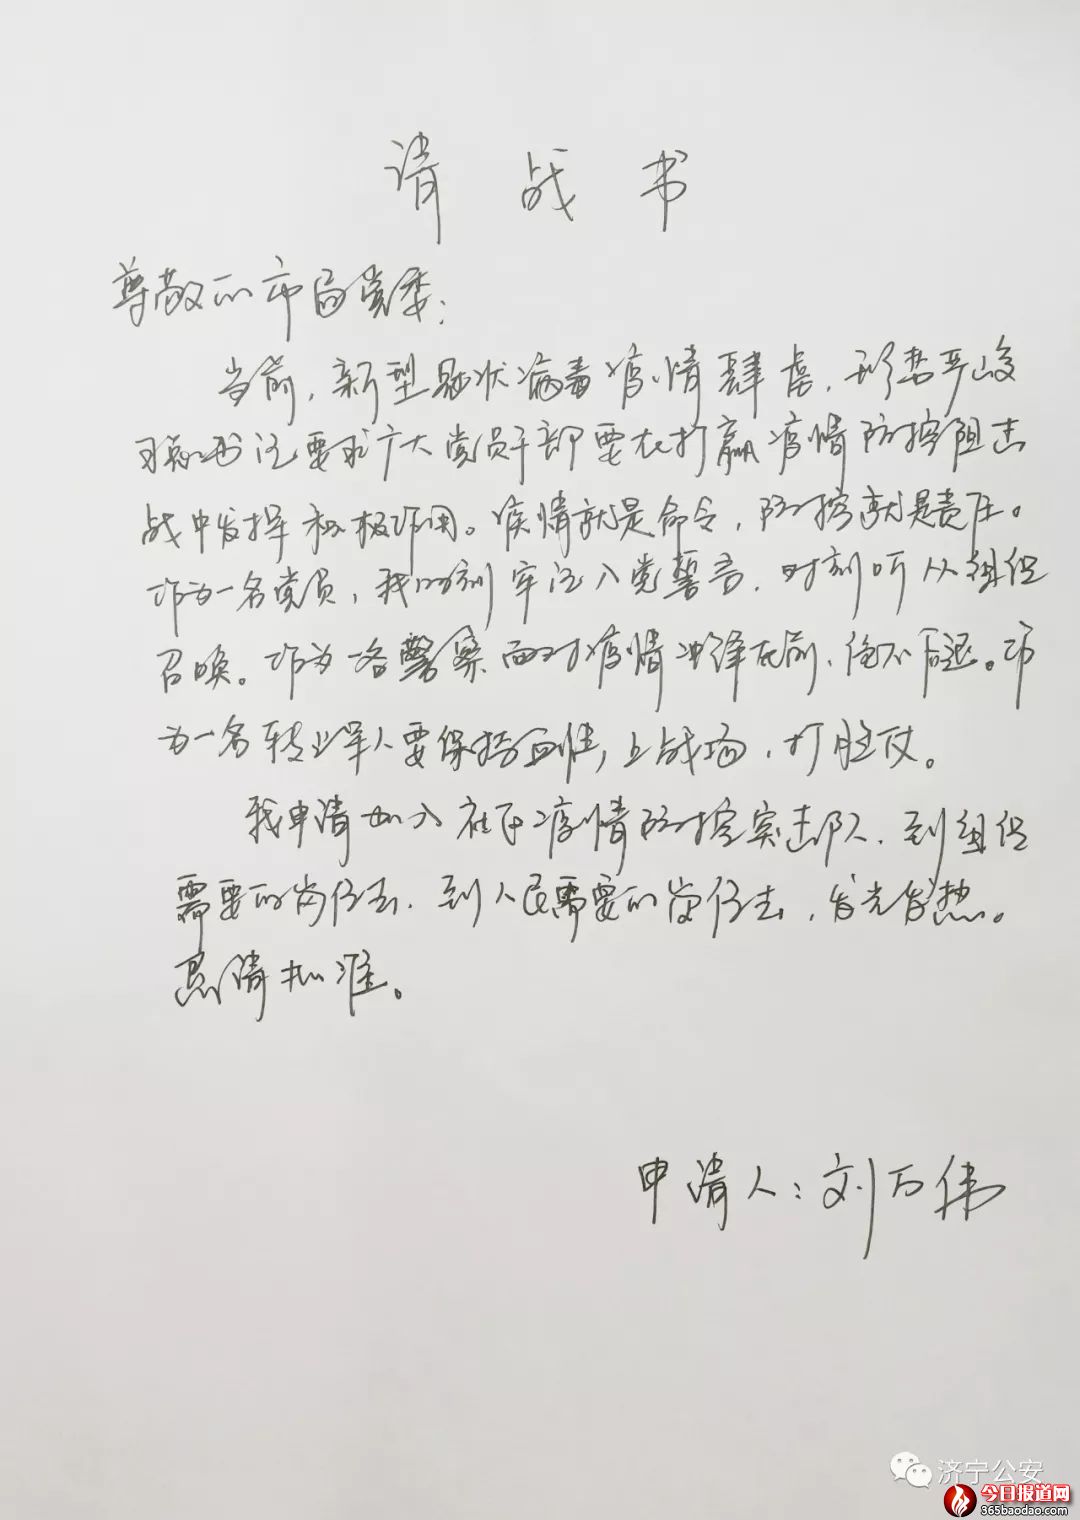 请战书
尊敬的市局党委：
当前，新型冠状病毒疫情肆虐，形势严峻
习总书记要求广大党员干部要在打赢疫情防控阻击
战中发挥积极作用。疫情就是命令，防控就是责任。
作为一名党员，我时刻牢记入党誓言，时刻听从组织
召唤。作为一名警察面对疫情冲锋在前，绝不后退。作
为一名转业军人要保持血性，上战场，打胜仗。
我申请加入在下疫情防控突击队，到组织
需要的岗位去，到人民需要的岗位去，发光发热。
恳请批准。
申请人：刘万伟
济宁公安
今日报道网
365baodao.com